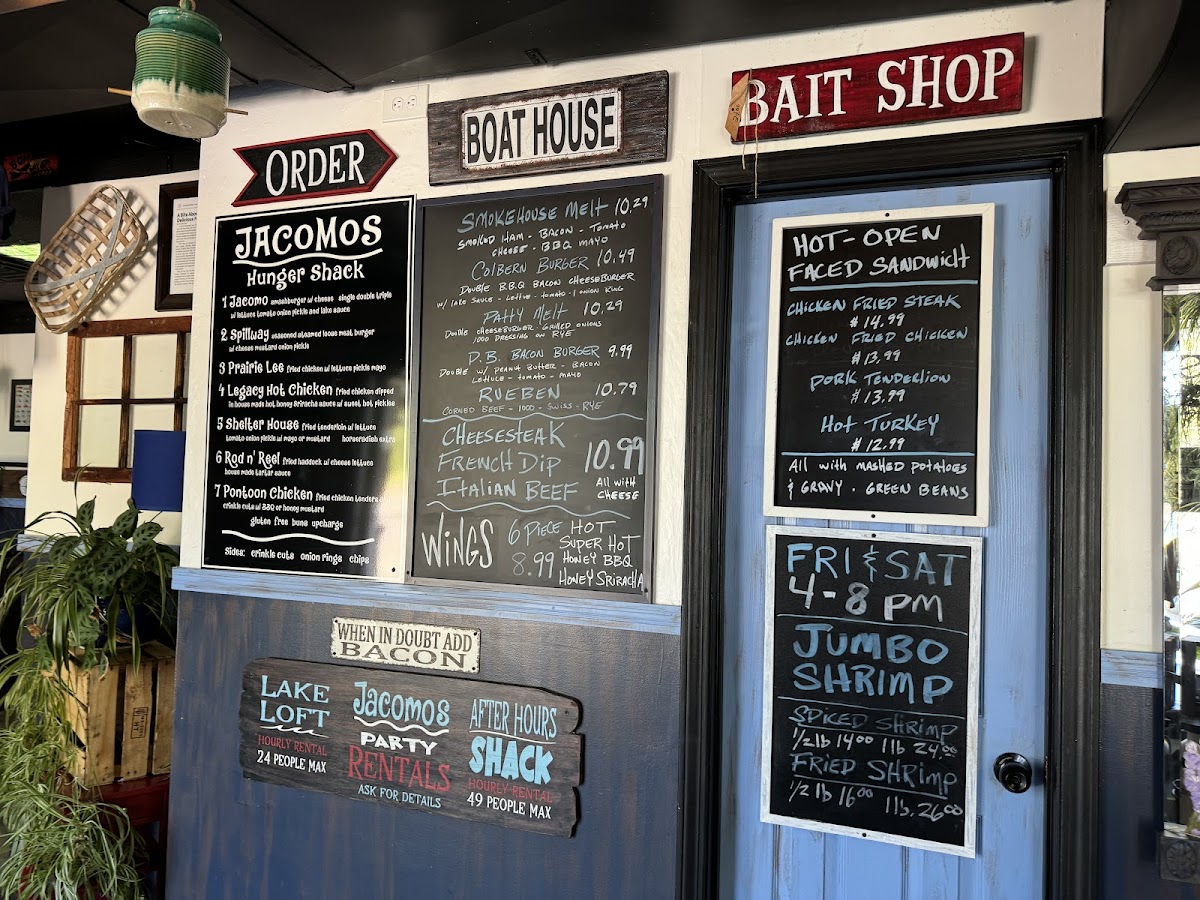 ORDER
BOAT HOUSE
BAIT SHOP
JACOMOS
Hunger Shack
1 Jacomo smashburger w/ cheese single double triple
w/ lettuce tomato onion pickle and lake sauce
2 Spillway seasoned steamed loose meat burger
w/ cheese mustard onion pickle
3 Prairie Lee fried chicken w/ lettuce pickle mayo
4 Legacy Hot Chicken fried chicken dipped
in house made hot honey Sriracha sauce w/ sweet hot pickles
5 Shelter House fried tenderloin w/ lettuce
tomato onion pickle w/ mayo or mustard horseradish extra
6 Rod n' Reel fried haddock w/ cheese lettuce
house made tartar sauce
7 Pontoon Chicken fried chicken tenders
crinkle cuts w/ BBQ or honey mustard
gluten free buns upcharge
Sides: crinkle cuts onion rings chips
SMOKEHOUSE MELT 10.29
SMOKED HAM - BACON - TOMATO
CHEESE - BBQ MAYO
COLBERN BURGER 10.49
DOUBLE B.B.Q BACON CHEESEBURGER
W/ LAKE SAUCE - LETTUCE - TOMATO - ONION RING
PATTY MELT 10.29
DOUBLE CHEESEBURGER - GRILLED ONIONS
1000 DRESSING ON RYE
D.B. BACON BURGER 9.99
DOUBLE W/ PEANUT BUTTER - BACON
LETTUCE - TOMATO - MAYO
RUEBEN 10.79
CORNED BEEF - 1000 - SWISS - RYE
CHEESESTEAK
FRENCH DIP 10.99
ITALIAN BEEF All with
CHEESE
WINGS 6 PIECE HOT
SUPER HOT
8.99 HONEY BBQ
HONEY SRIRACHA
HOT-OPEN
FACED SANDWICH
CHICKEN FRIED STEAK
$14.99
CHICKEN FRIED CHICKEN
$13.99
PORK TENDERLION
$13.99
HOT TURKEY
$12.99
All with MASHED POTATOES
& GRAVY . GREEN BEANS
FRI & SAT
4-8 PM
JUMBO
SHRIMP
SPICED SHRIMP
1/2 lb 14.00 1 lb 24.00
FRIED SHRIMP
1/2 lb 16.00 1 lb. 26.00
WHEN IN DOUBT ADD
BACON
LAKE
LOFT
HOURLY RENTAL
24 PEOPLE MAX
Jacomos
PARTY
RENTALS
ASK FOR DETAILS
AFTER HOURS
SHACK
HOURLY RENTAL
49 PEOPLE MAX